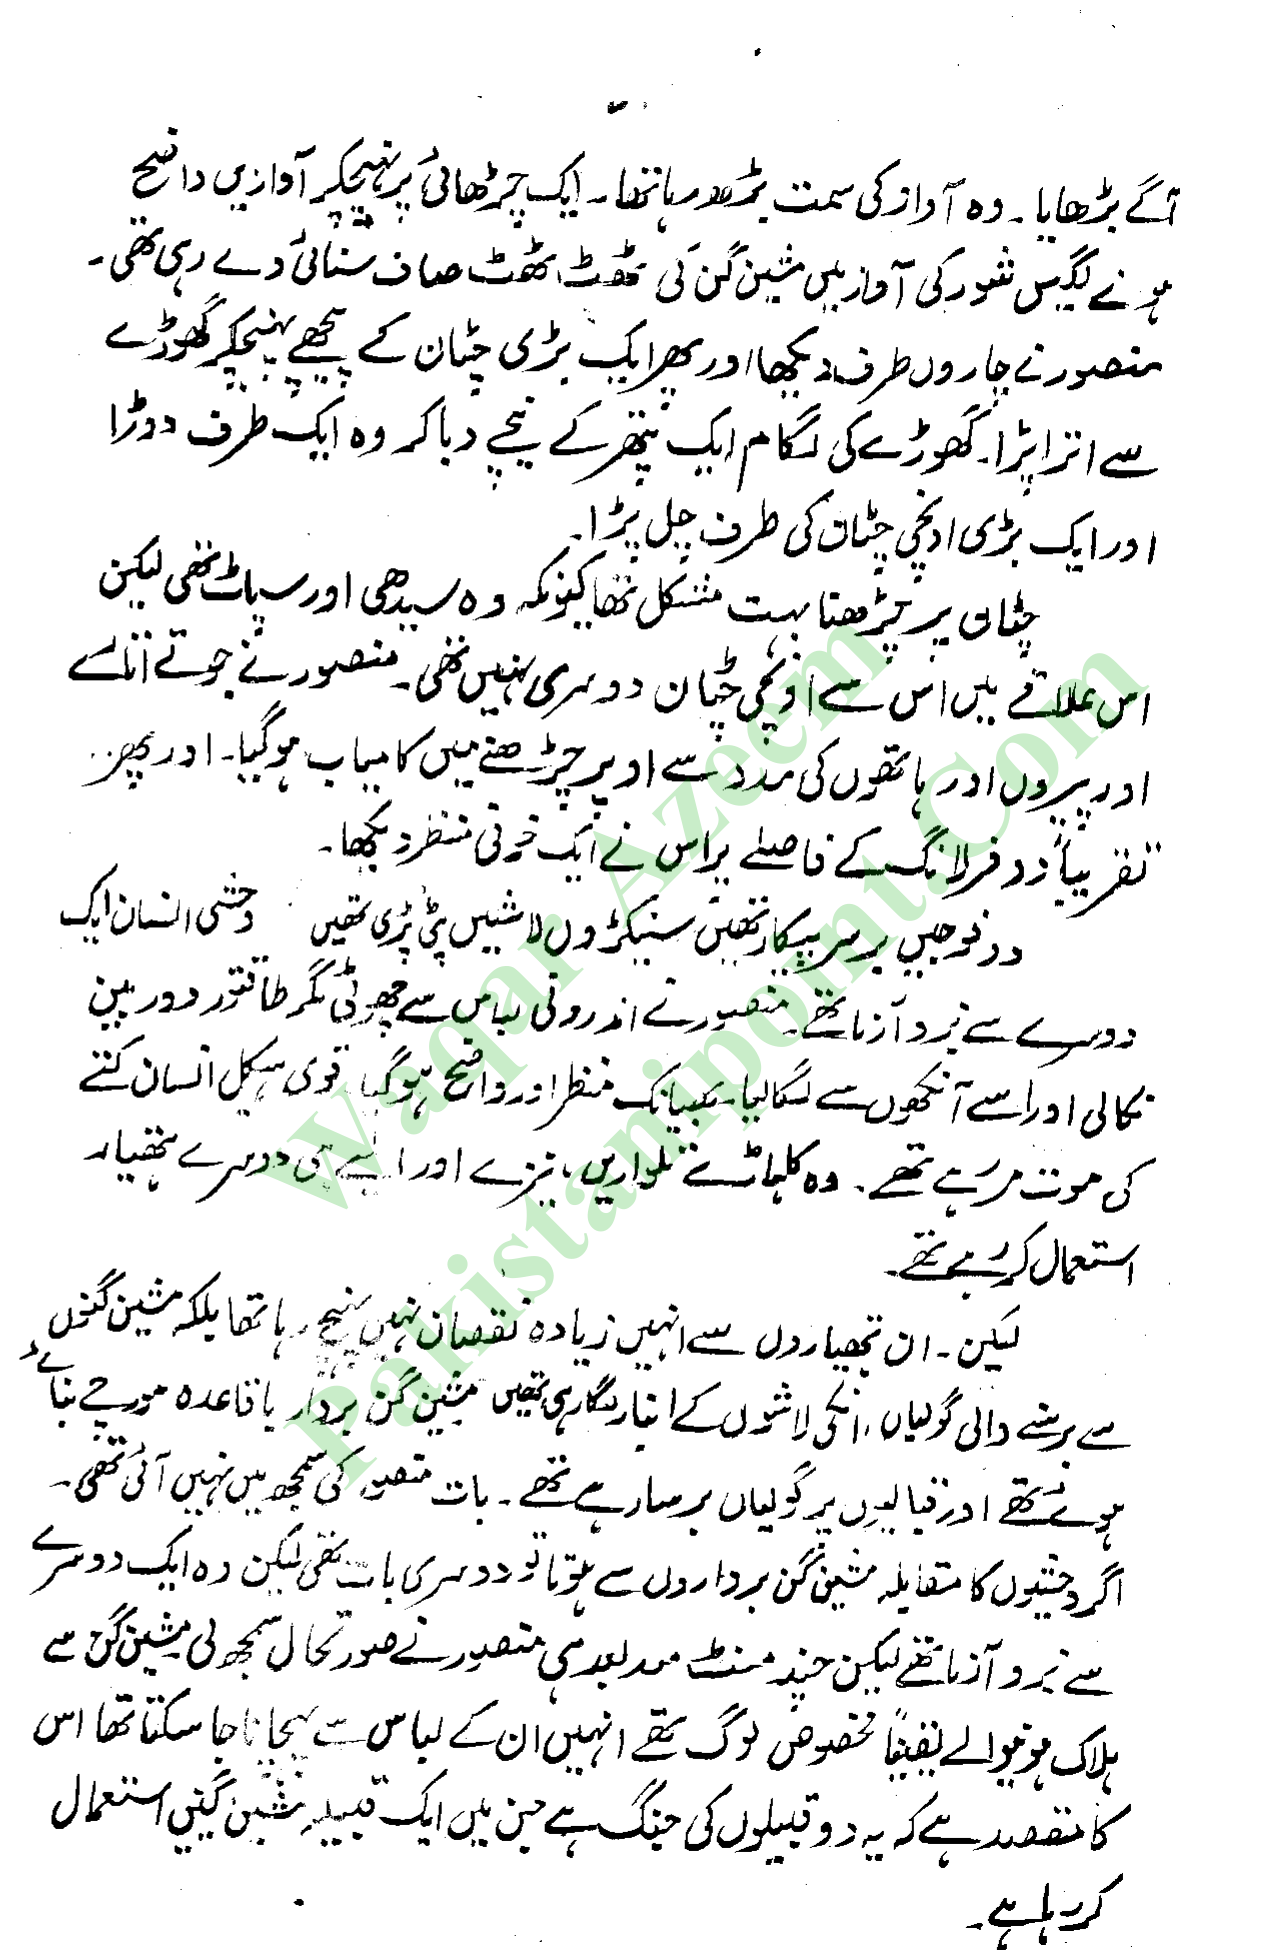 آگے بڑھایا۔ وہ آواز کی سمت بڑھ رہا تھا۔ ایک چڑھائی پر پہنچکر آوازیں واضح
ہونے لگیں شور کی آواز میں مشین گن کی ٹھٹ ٹھٹ صاف سنائی دے رہی تھی۔
منصور نے چاروں طرف دیکھا اور پھر ایک بڑی چٹان کے پیچھے پہنچکر گھوڑے
سے اتر اپڑا۔ گھوڑے کی لگام ایک پتھر کے نیچے دبا کر وہ ایک طرف دوڑا
اور ایک بڑی اونچی چٹان کی طرف چل پڑا۔
چٹان پر چڑھنا بہت مشکل تھا کیونکہ وہ سیدھی اور سپاٹ تھی لیکن
اس علاقے میں اس سے اونچی چٹان دوسری نہیں تھی۔ منصور نے جوتے اتارے
اور پیروں اور ہاتھوں کی مدد سے اوپر چڑھنے میں کامیاب ہو گیا۔ اور پھر
تقریباً دو فرلانگ کے فاصلے پر اس نے ایک خونی منظر دیکھا۔
دو فوجیں برسرپیکار تھیں سینکڑوں لاشیں پٹی پڑی تھیں وحشی انسان ایک
دوسرے سے نبرد آزما تھے۔ منصور نے اندرونی لباس سے چھوٹی مگر طاقتور دوربین
نکالی اور اسے آنکھوں سے لگالیا۔ بھیانک منظر اور واضح ہو گیا۔ قوی ہیکل انسان کتے
کی موت مر رہے تھے۔ وہ کلہاڑے تلواریں، نیزے اور ایسے ہی دوسرے ہتھیار
استعمال کر رہے تھے۔
لیکن۔ ان ہتھیاروں سے انہیں زیادہ نقصان نہیں پہنچ رہا تھا بلکہ مشین گنوں
سے برسنے والی گولیاں، انکی لاشوں کے انبار لگا رہی تھیں مشین گن بردار باقاعدہ مورچے بنائے
ہوئے تھے اور قبالیوں پر گولیاں برسا رہے تھے۔ بات منصور کی سمجھ میں نہیں آئی تھی۔
اگر وحشیوں کا مقابلہ مشین گن برداروں سے ہوتا تو دوسری بات تھی لیکن وہ ایک دوسرے
سے نبرد آزما تھے لیکن چند منٹ بعد ہی منصور نے صورتحال سمجھ لی مشین گن سے
ہلاک ہونیوالے یقیناً مخصوص لوگ تھے انہیں ان کے لباس سے پہچانا جا سکتا تھا اس
کا مقصد ہے کہ یہ دو قبیلوں کی جنگ ہے جن میں ایک قبیلہ مشین گنیں استعمال
کر رہا ہے۔
Waqar Azeem
Pakistanipoint.Com